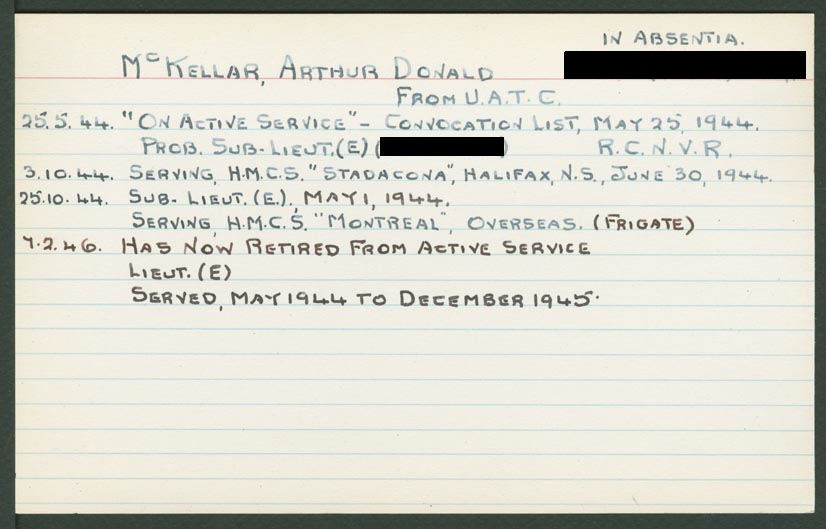 IN ABSENTIA.
McKELLAR, ARTHUR DONALD
FROM U.A.T.C.
25.5.44. "ON ACTIVE SERVICE" - CONVOCATION LIST, MAY 25, 1944.
PROB. SUB-LIEUT.(E) ( ) R.C.N.V.R.
3.10.44. SERVING, H.M.C.S. "STADACONA", HALIFAX, N.S., JUNE 30, 1944.
25.10.44. SUB-LIEUT. (E.), MAY 1, 1944.
SERVING, H.M.C.S. "MONTREAL", OVERSEAS. (FRIGATE)
7.2.46. HAS NOW RETIRED FROM ACTIVE SERVICE
LIEUT. (E)
SERVED, MAY 1944 TO DECEMBER 1945.